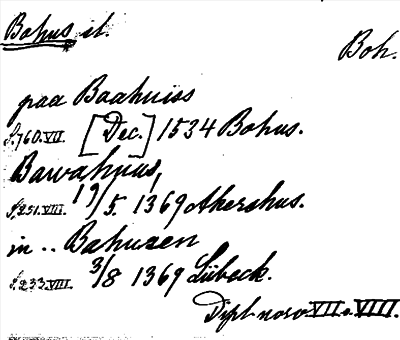 Bohus sl.
Boh.
paa Baahuiss
S. 760. VII. [Dec.] 1534 Bohus.
Bawahuus,
S. 251. VIII. 19/5. 1369 Akershus.
in .. Bahusen
S. 233. VIII. 3/8 1369 Lübeck.
Dipl. norv. VII o. VIII.